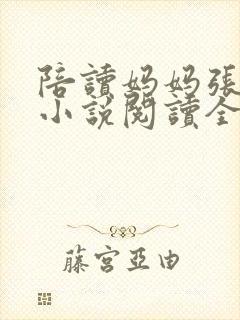 陪讀媽媽張
小説閱讀全
藤宮亞由